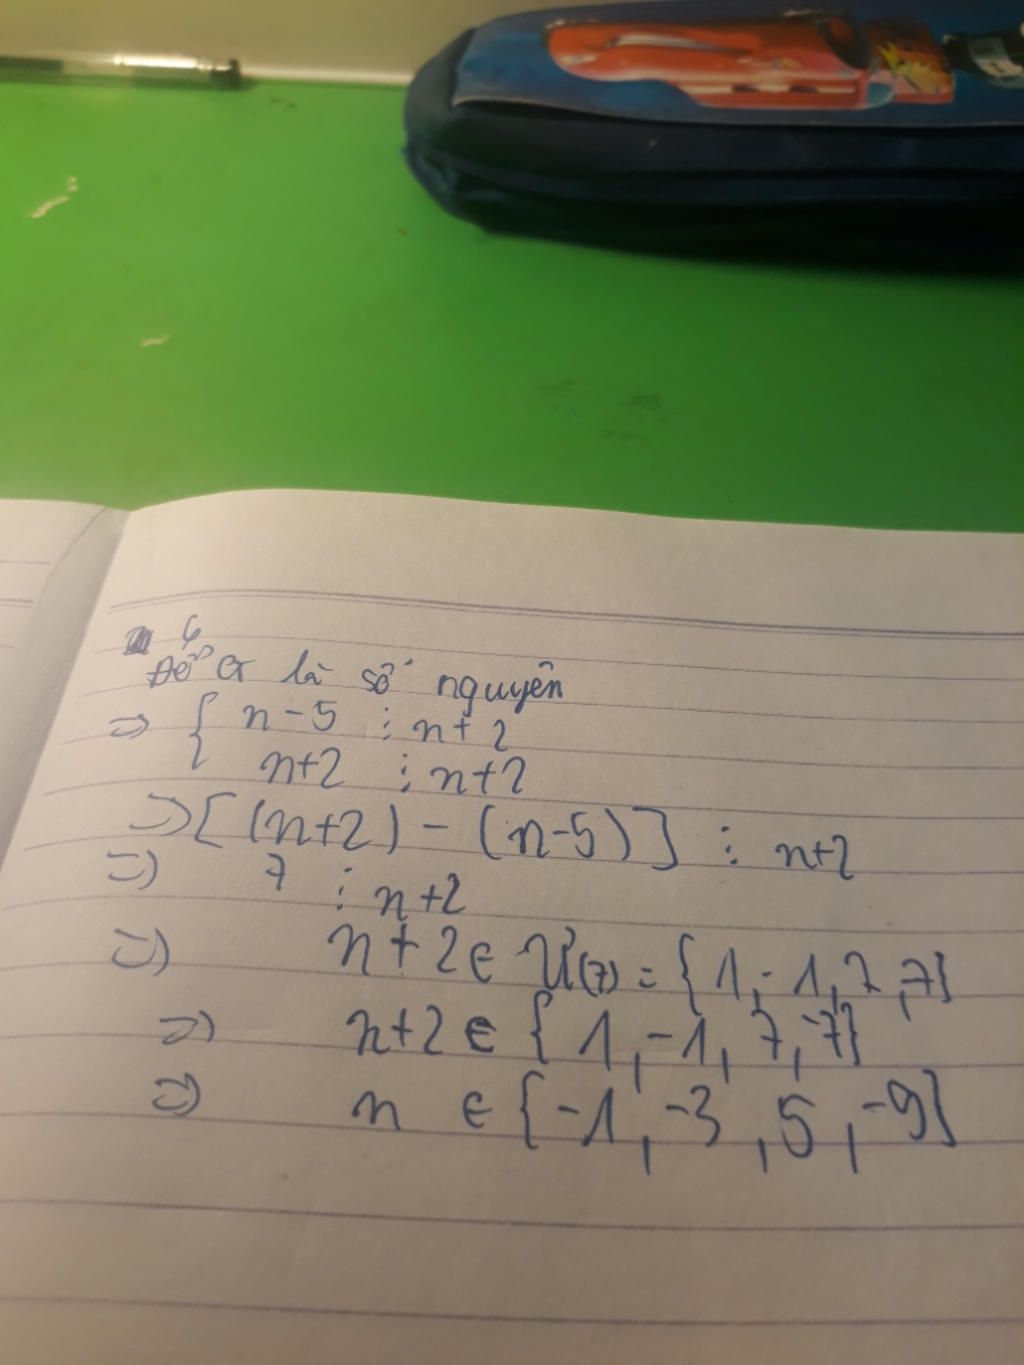 Để G là số nguyên
=> { n-5 ⋮ n+2
n+2 ⋮ n+2
=> [(n+2) - (n-5)] ⋮ n+2
=> 7 ⋮ n+2
=> n+2 ∈ Ư(7) = {1,-1,7,7}
=> n+2 ∈ {1,-1,7,-7}
=> n ∈ {-1,-3,5,-9}